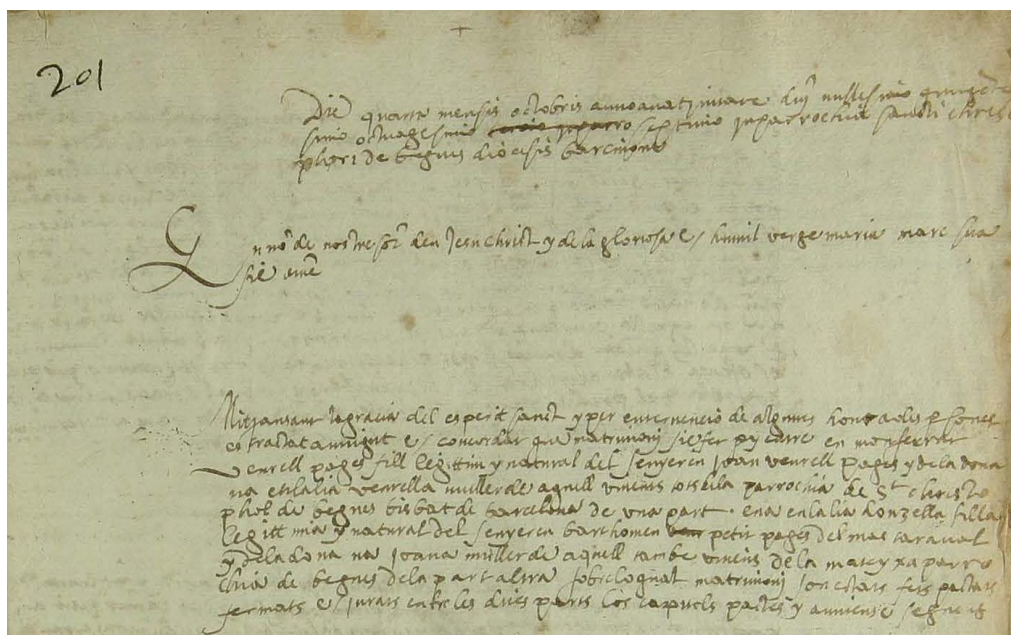 201
Die quarta mensis octobris anno a nativitate dni millesimo quinge
simo octuagesimo septimo in parrochia sancti christo
phori de begues diocesis barcinone
En no de nostre sor deu Jesu Christ y de la gloriosa e humil verge maria mare sua
sie ame
Mitjansant la gracia del esperit sanct y per entrevencio de algunes honrades psones
es tractat amigut e concordat que matrimoni sie fet per y entre en monserrat
venrell pages fill legittim y natural del senyer en Joan venrell pages y de la dona
na eulalia venrella muller de aquell vivints tots de la parrochia de St christo
phol de begues bisbat de barcelona de una part. e na eulalia donzella filla
legittima y natural del senyer en barthomeu petit pages del mas
y de la dona na Joana muller de aquell tambe vivints de la mateyxa parro
chia de begues de la part altra sobre lo qual matrimoni son estats fets pactats
fermats e jurats entre les dites parts los capitols pactes y avinense seguents